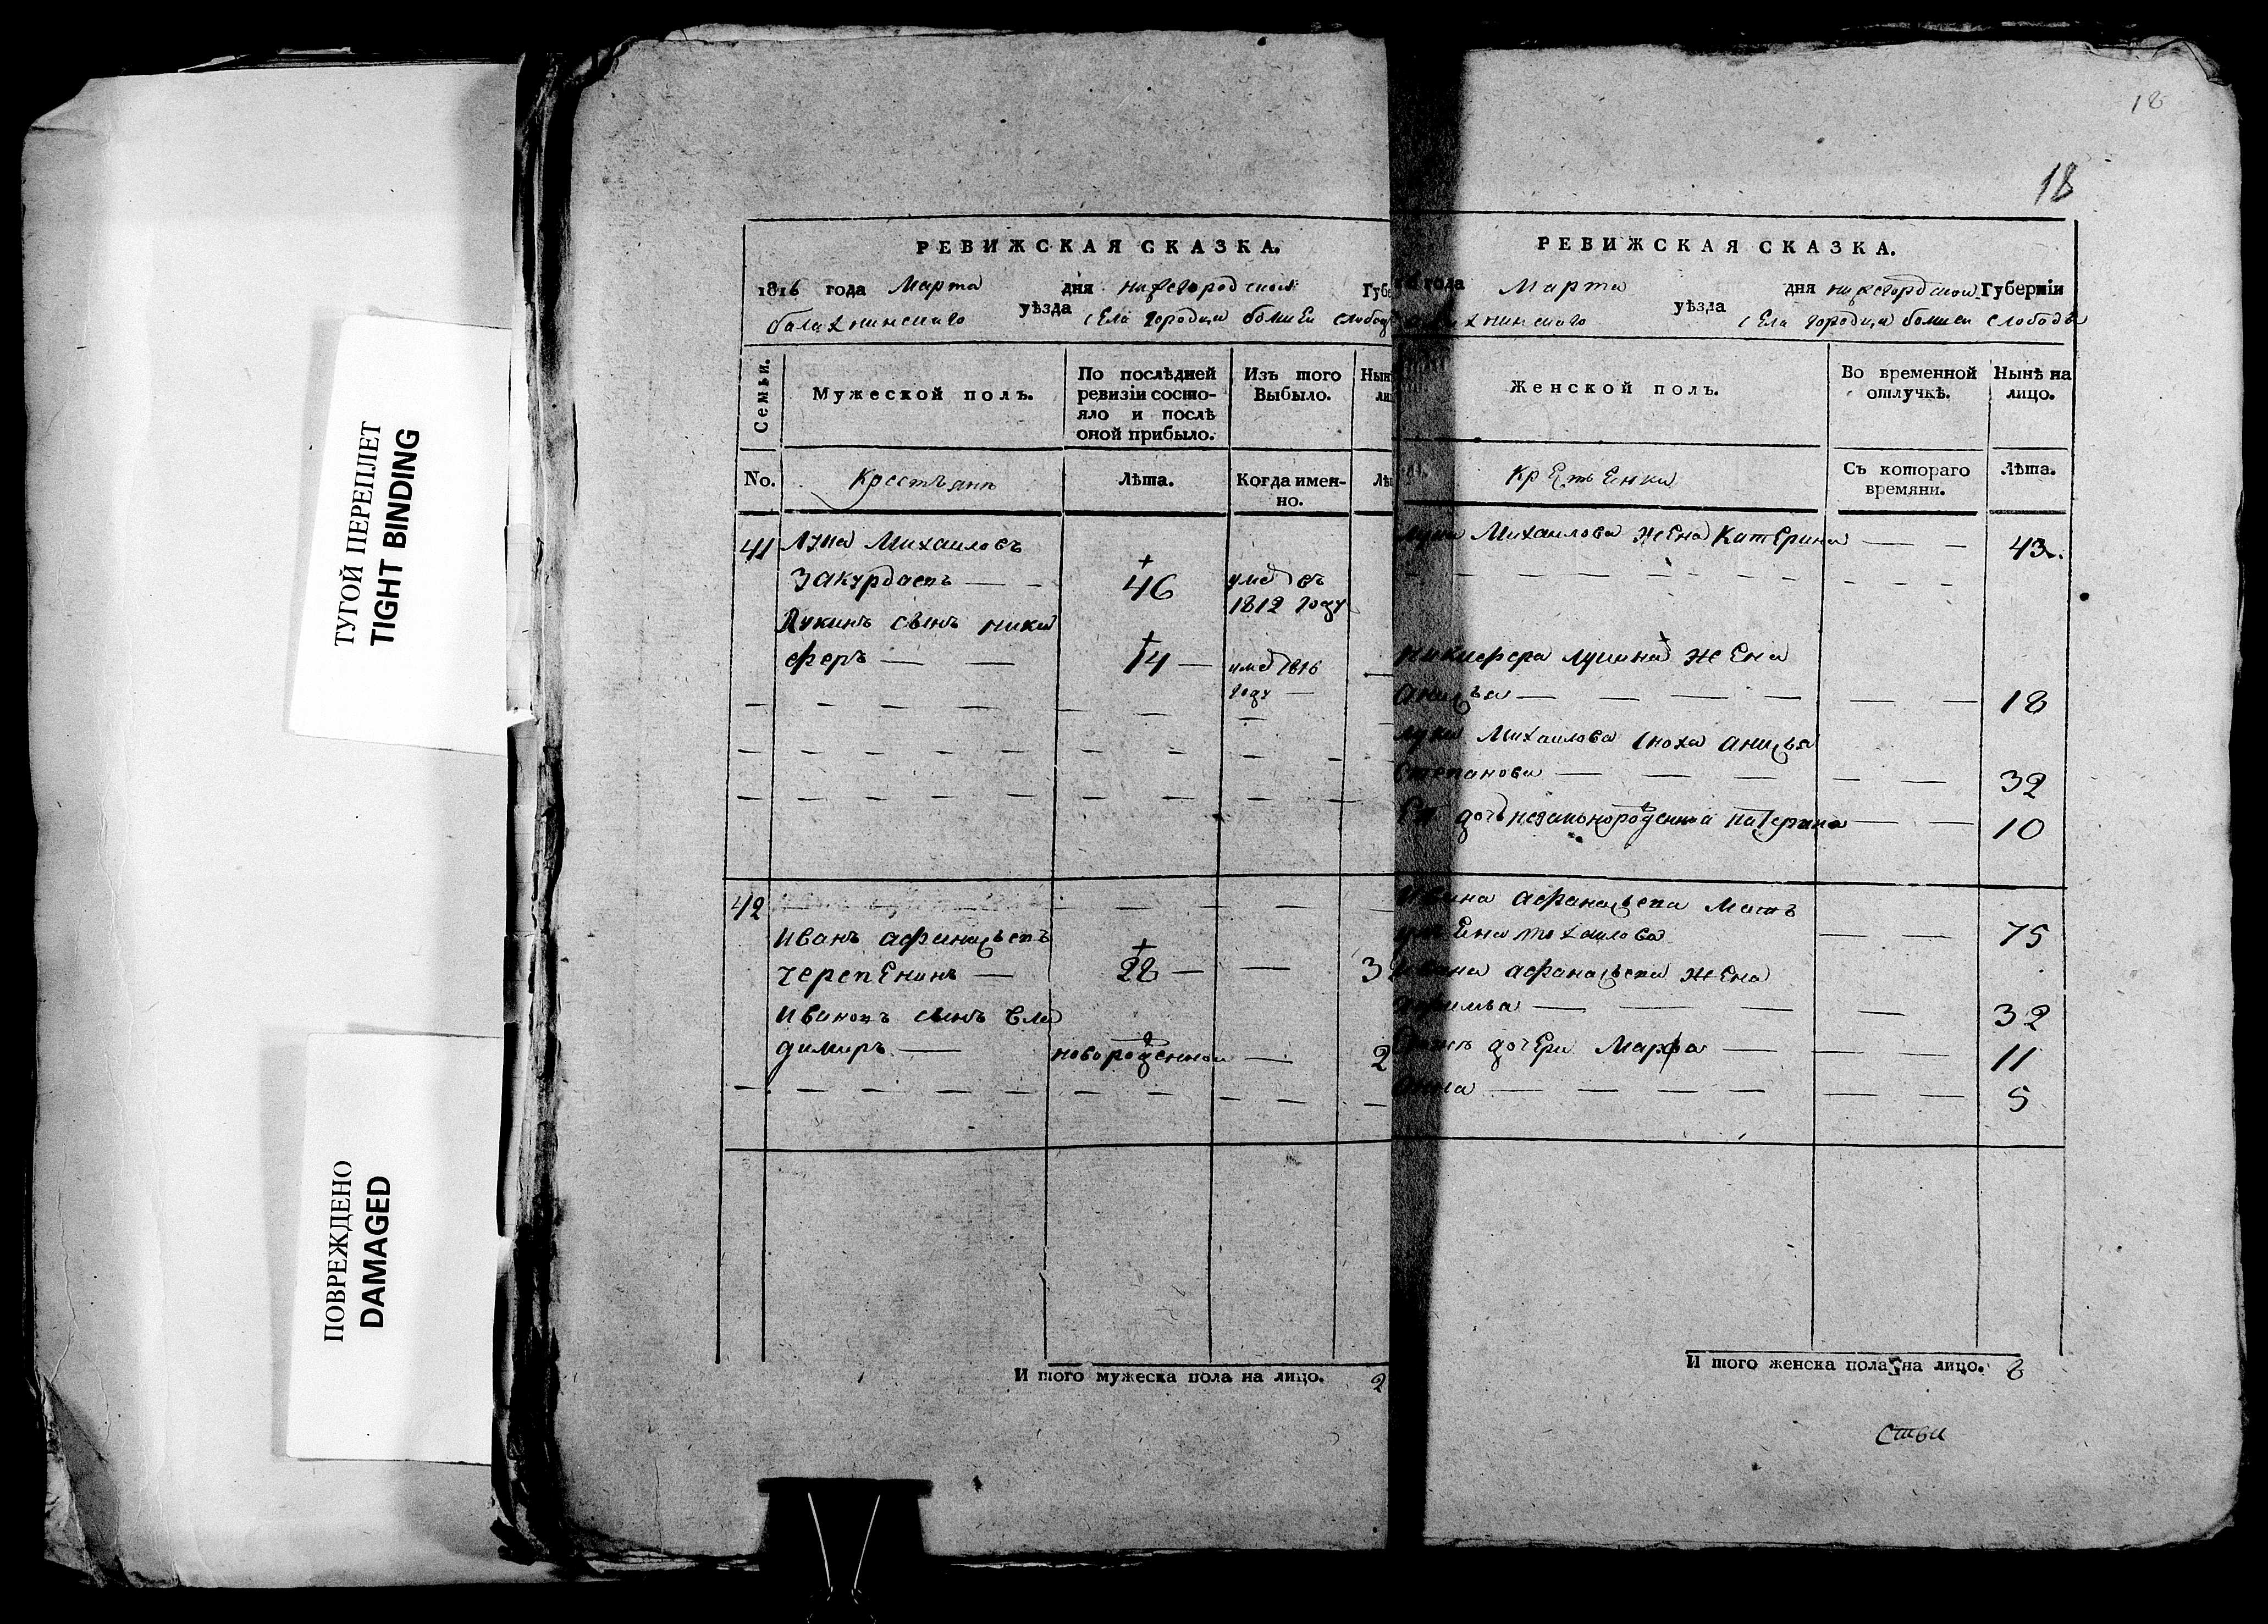 ТУГОЙ ПЕРЕПЛЕТ
TIGHT BINDING
ПОВРЕЖДЕНО
DAMAGED
РЕВИЖСКАЯ СКАЗКА.
1816 года Марта дня нижегородской Губе
балахнинскаго уѣзда села городца
Семьи.
Мужеской полъ.
По послѣдней ревизіи состояло и послѣ оной прибыло.
Изъ того Выбыло.
Нын
No.
крестьянъ
Лѣта.
Когда именно.
41 Лука Михаиловъ
Закурдаевъ — 46 умеръ въ 1812 году
Лукинъ сынъ ники
феръ — — 14 — 1816 году —
42
Иванъ афанасьевъ
черепенинъ — 28 — — 3
Ивановъ сынъ вла
димиръ — новорожденной — 2
И того мужеска пола на лицо. 2
18
18
РЕВИЖСКАЯ СКАЗКА.
года Марта дня нижегородской Губерніи
уѣзда села городца слободы
Женской полъ.
Во временной отлучкѣ.
Нынѣ на лицо.
Съ котораго времяни.
Лѣта.
Луки Михаилова жена Катерина — — 43.
никифера лукина жена
анисья — — — 18
луки Михаилова сноха анисья
степанова — — — 32
дочь незаконорожденная катерина — — 10
Ивана афанасьева мать
75
Ивана афанасьева жена
— — — 32
дочери Марфа — — 11
анна — — — 5
И того женска пола на лицо. 8